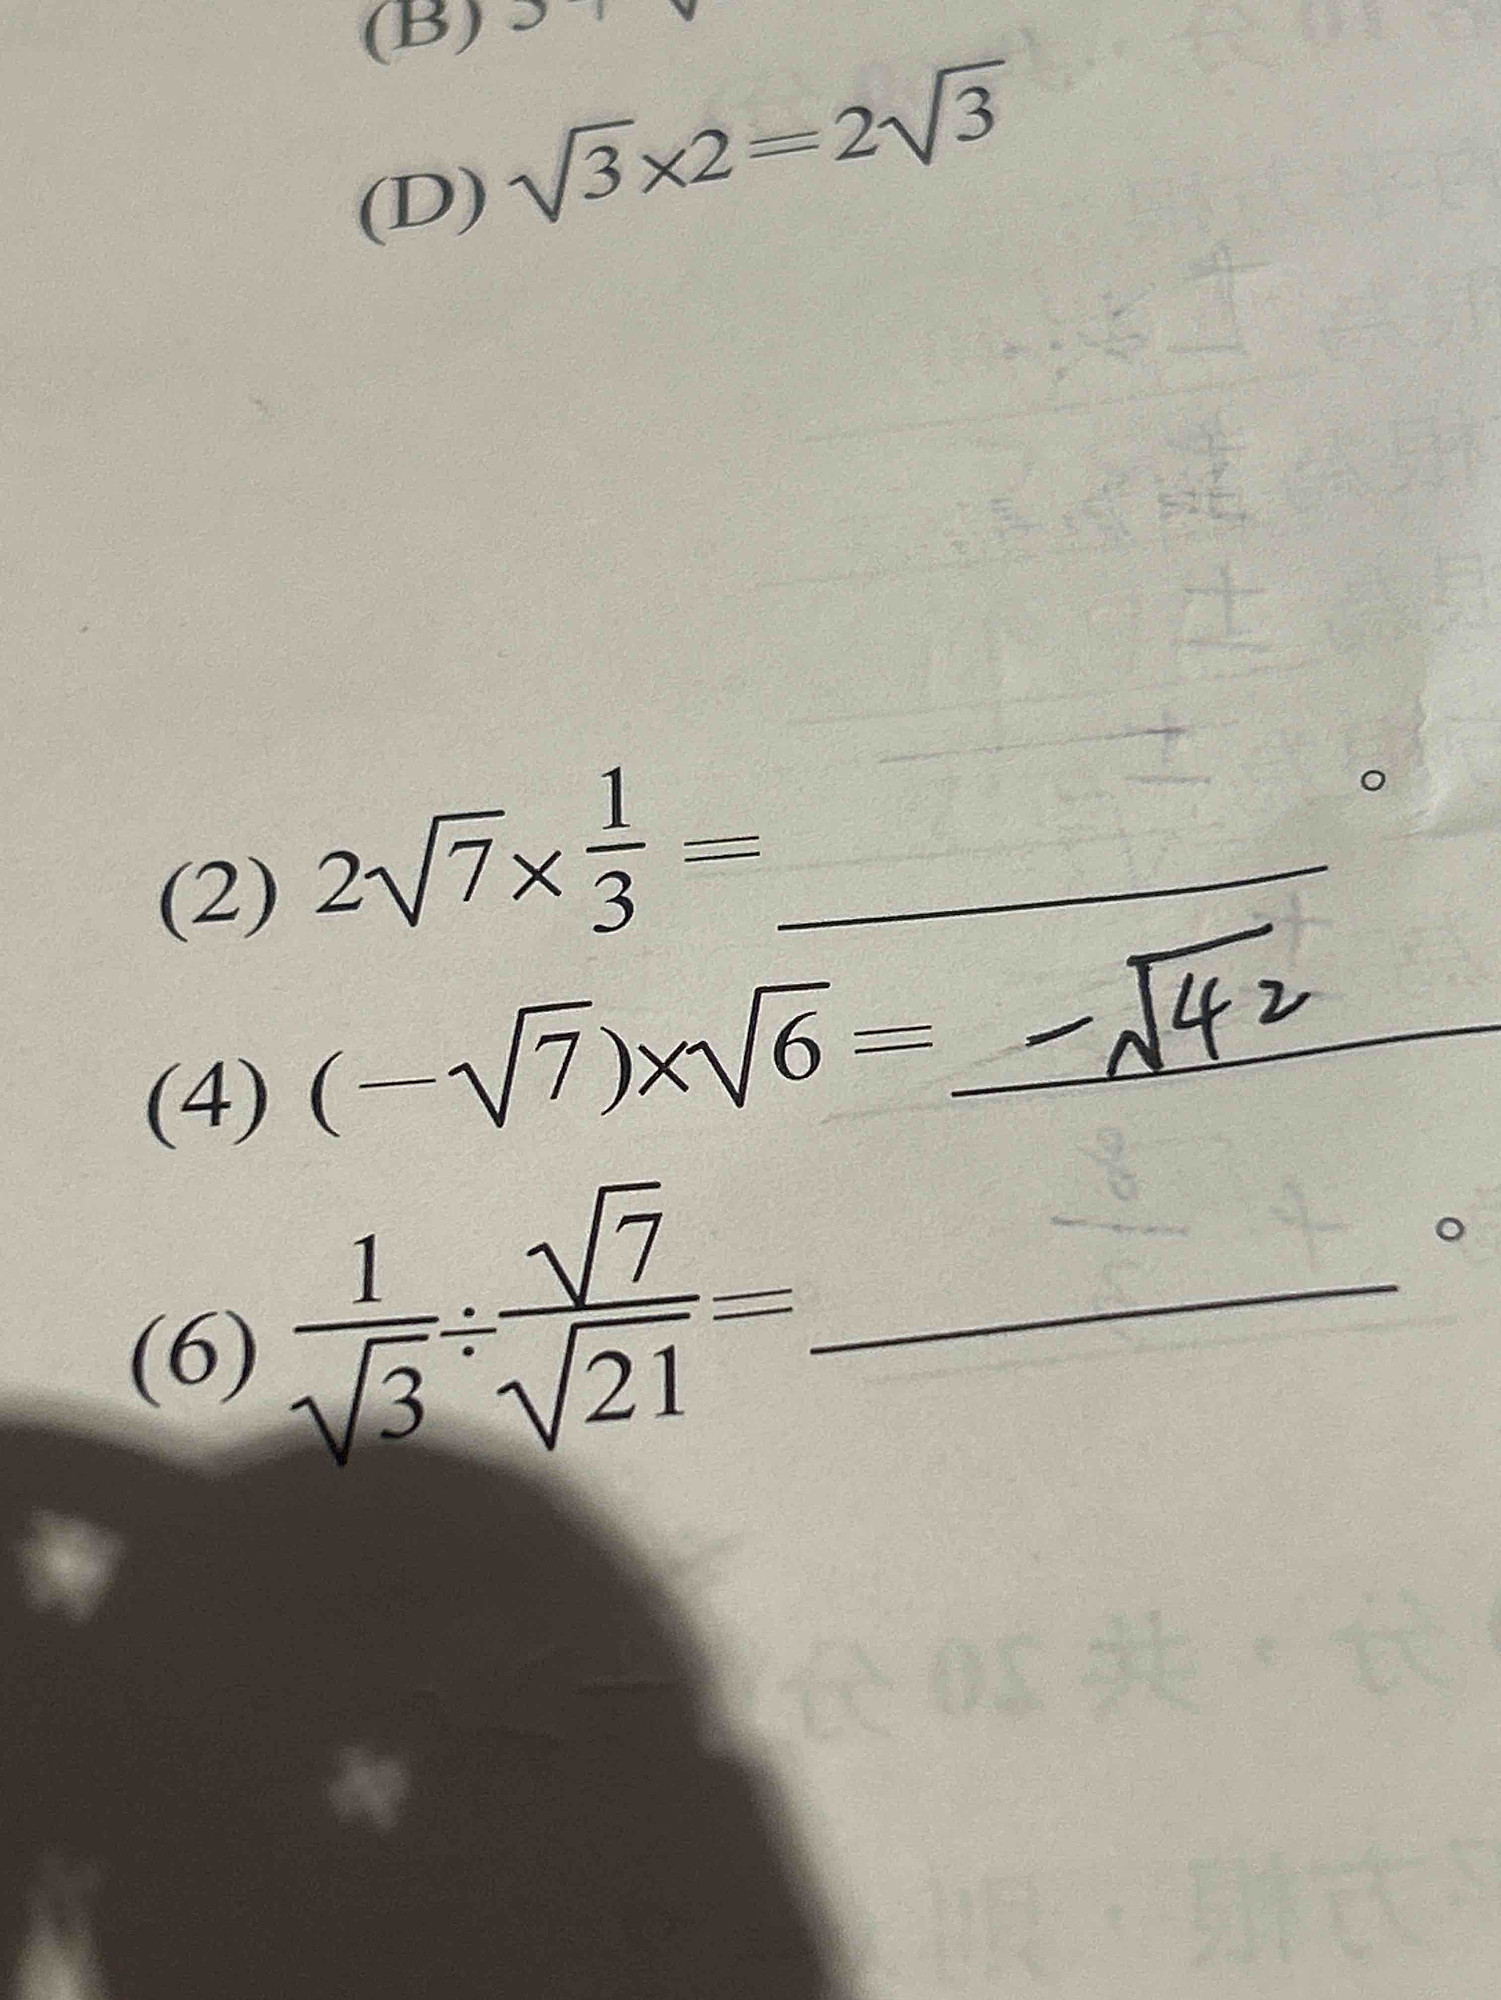 (D) √3×2=2√3
(2) 2√7×1/3= 。
(4) (−√7)×√6= −√42
(6) 1/√3÷√7/√21= 。